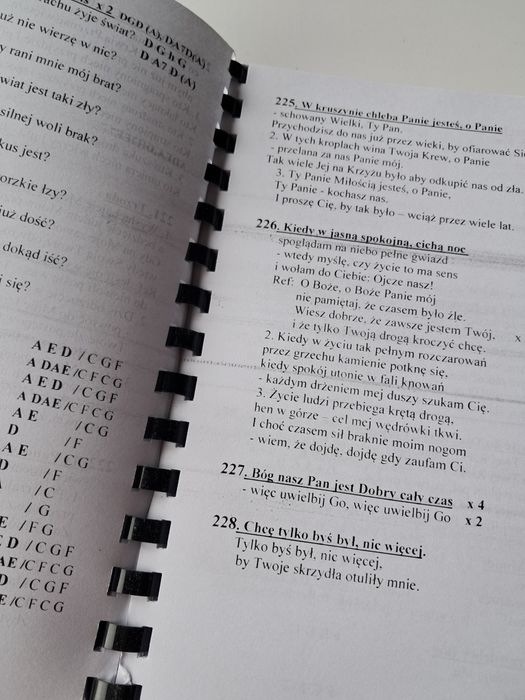 x 2 DGD (A), DA7D(A)
achu żyje świat? D G h G
uż nie wierzę w nic? D A7 D (A)
y rani mnie mój brat?
wiat jest taki zły?
silnej woli brak?
kus jest?
orzkie łzy?
już dość?
dokąd iść?
i się?
A E D / C G F
A DAE /C F C G
A E D / C G F
A DAE /C F C G
A E / C G
D / F
A E / C G
D / F
A / C
/ G
E / F G
E D / C G F
AE /C F C G
D / C G F
E /C F C G
225. W kruszynie chleba Panie jesteś, o Panie
- schowany Wielki, Ty Pan.
Przychodzisz do nas już przez wieki, by ofiarować
2. W tych kroplach wina Twoja Krew, o Panie
- przelana za nas Panie mój.
Tak wiele Jej na Krzyżu było aby odkupić nas od zła.
3. Ty Panie Miłością jesteś, o Panie,
Ty Panie - kochasz nas.
I proszę Cię, by tak było – wciąż przez wiele lat.
226. Kiedy w jasną spokojną, cichą noc
spoglądam na niebo pełne gwiazd
- wtedy myślę, czy życie to ma sens
i wołam do Ciebie: Ojcze nasz!
Ref: O Boże, o Boże Panie mój
nie pamiętaj, że czasem było źle.
Wiesz dobrze, że zawsze jestem Twój, x
i że tylko Twoją drogą kroczyć chcę.
2. Kiedy w życiu tak pełnym rozczarowań
przez grzechu kamienie potknę się,
kiedy spokój utonie w fali knowań
- każdym drżeniem mej duszy szukam Cię.
3. Życie ludzi przebiega krętą drogą,
hen w górze – cel mej wędrówki tkwi.
I choć czasem sił braknie moim nogom
- wiem, że dojdę, dojdę gdy zaufam Ci.
227. Bóg nasz Pan jest Dobry cały czas x 4
- więc uwielbij Go, więc uwielbij Go x 2
228. Chcę tylko byś był, nic więcej.
Tylko byś był, nic więcej,
by Twoje skrzydła otuliły mnie.